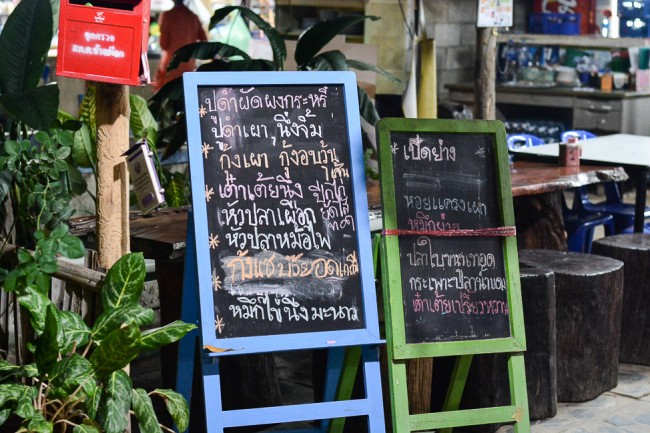 ปูดำผัดผงกระหรี่
ปูดำเผา, นึ่งจิ้ม
กุ้งเผา กุ้งอบวุ้นเส้น
เต๋าเต้ยนึ่ง
ปีกไก่
หัวปลาเผือก
หัวปลาหม้อไฟ
กุ้งแช่บ๊วย
หมึกไข่นึ่งมะนาว
เป็ดย่าง
หอยแครงเผา
หมึกย่าง
ปลาใบขนุนทอด
กระเพาะปลาน้ำแดง
เต๋าเต้ยเปรี้ยวหวาน